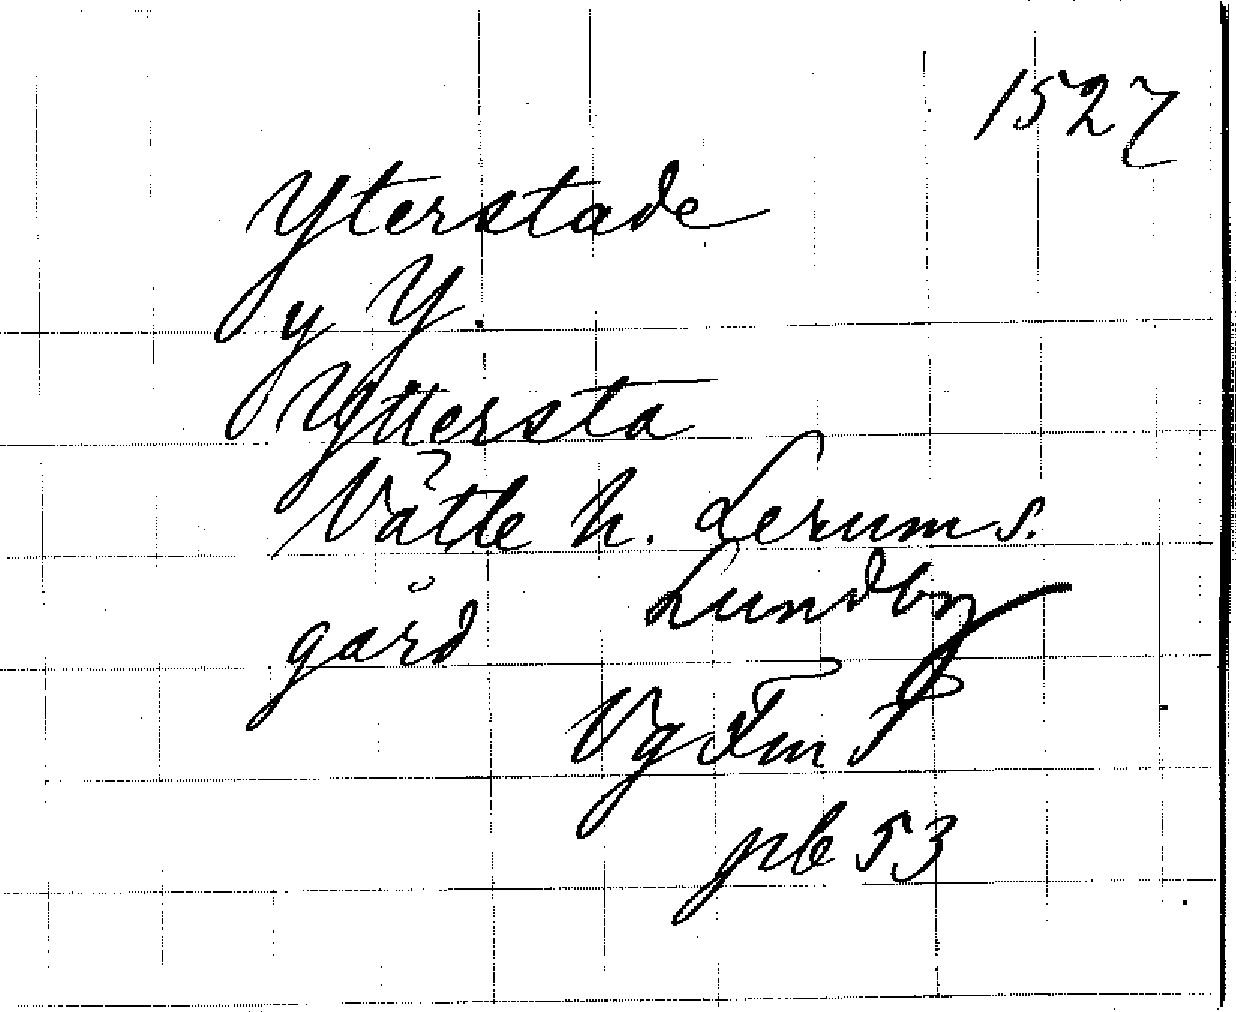 1527
Yterstade
y Y.
Yttersta
Vätle h. Lerum s.
gård Lundby
Vg Fm I
pb 53